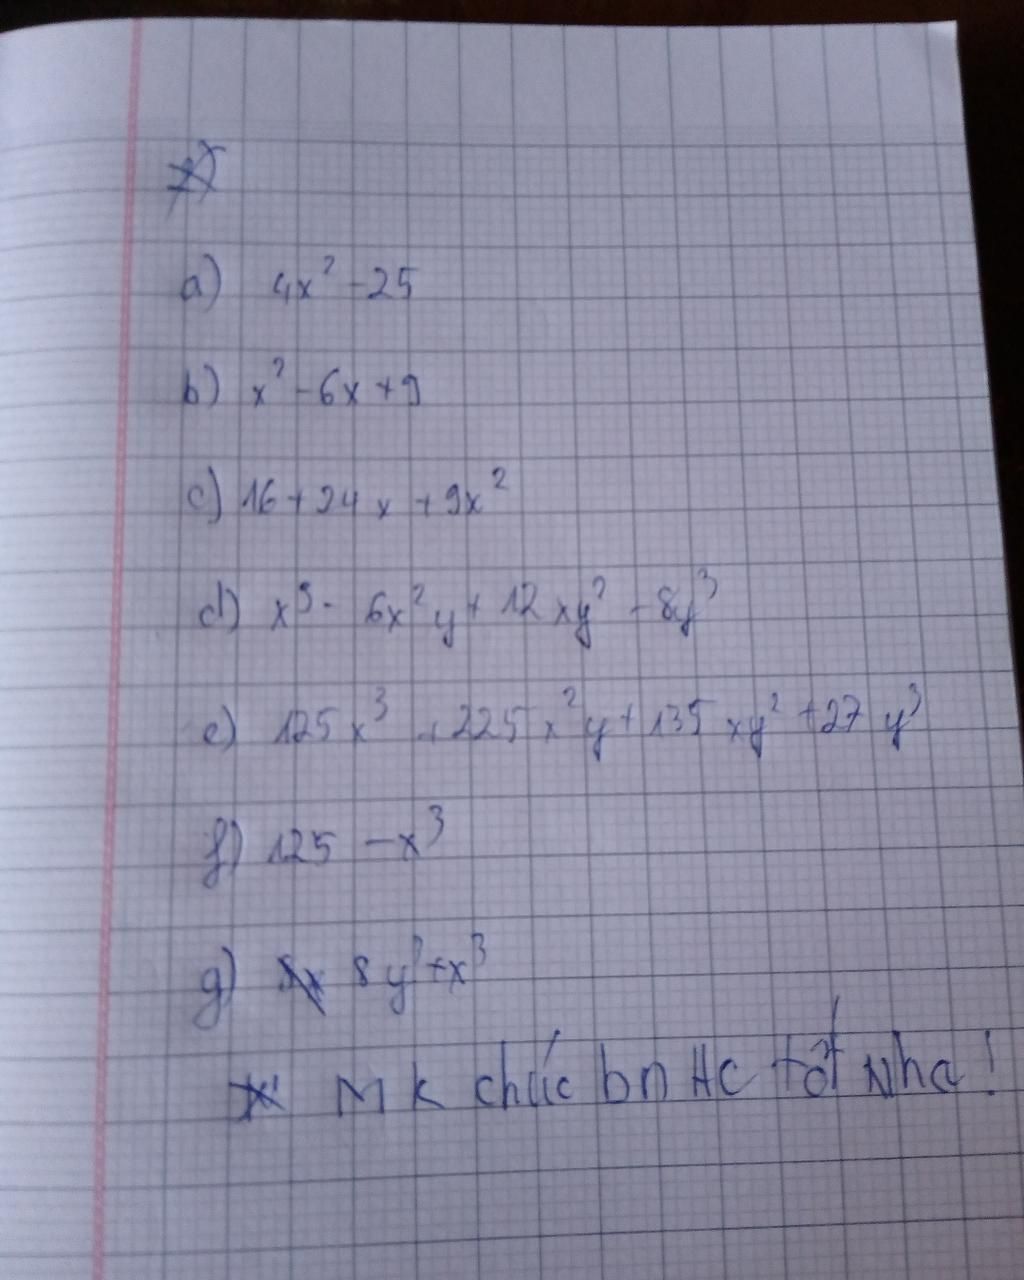 a) 4x² - 25
b) x² - 6x + 9
c) 16 + 24x + 9x²
d) x³ - 6x²y + 12xy² - 8y³
e) 125x³ + 225x²y + 135xy² + 27y³
f) 125 - x³
g) 8y³ + x³
* Mk chúc bn Hc tốt Nha!